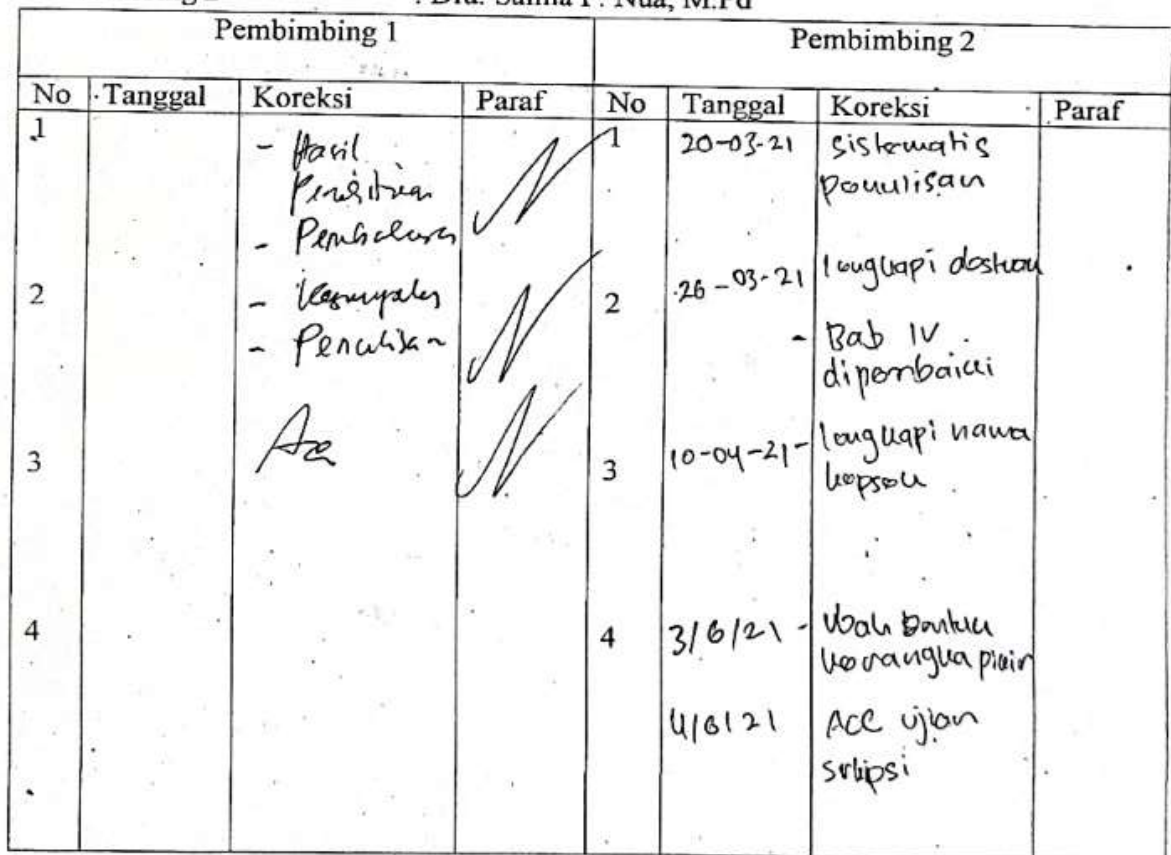 : Dra. Salma P. Nua, M.Pd
Pembimbing 1
Pembimbing 2
No Tanggal Koreksi Paraf No Tanggal Koreksi Paraf
1
- Hasil
Penelitian
- Pembahasan
2
- Kesimpulan
- Penulisan
3
Acc
4
1 20-03-21 Sistematis
penulisan
2 26-03-21 lengkapi
- Bab IV
diperbaiki
3 10-04-21 - lengkapi nama
kepsek
4 3/6/21 - Ubah bentuk
kerangka pikir
4/6/21 ACC ujian
skripsi